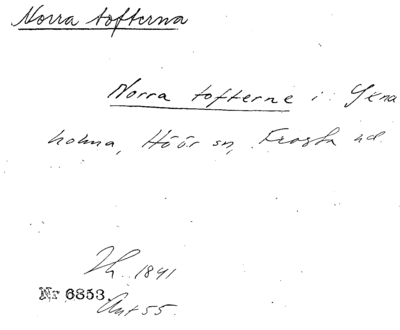 Norra tofterna
Norra tofterne i
holma, Höör sn, Frosta hd.
1841
Nr 6853
Ant 55.